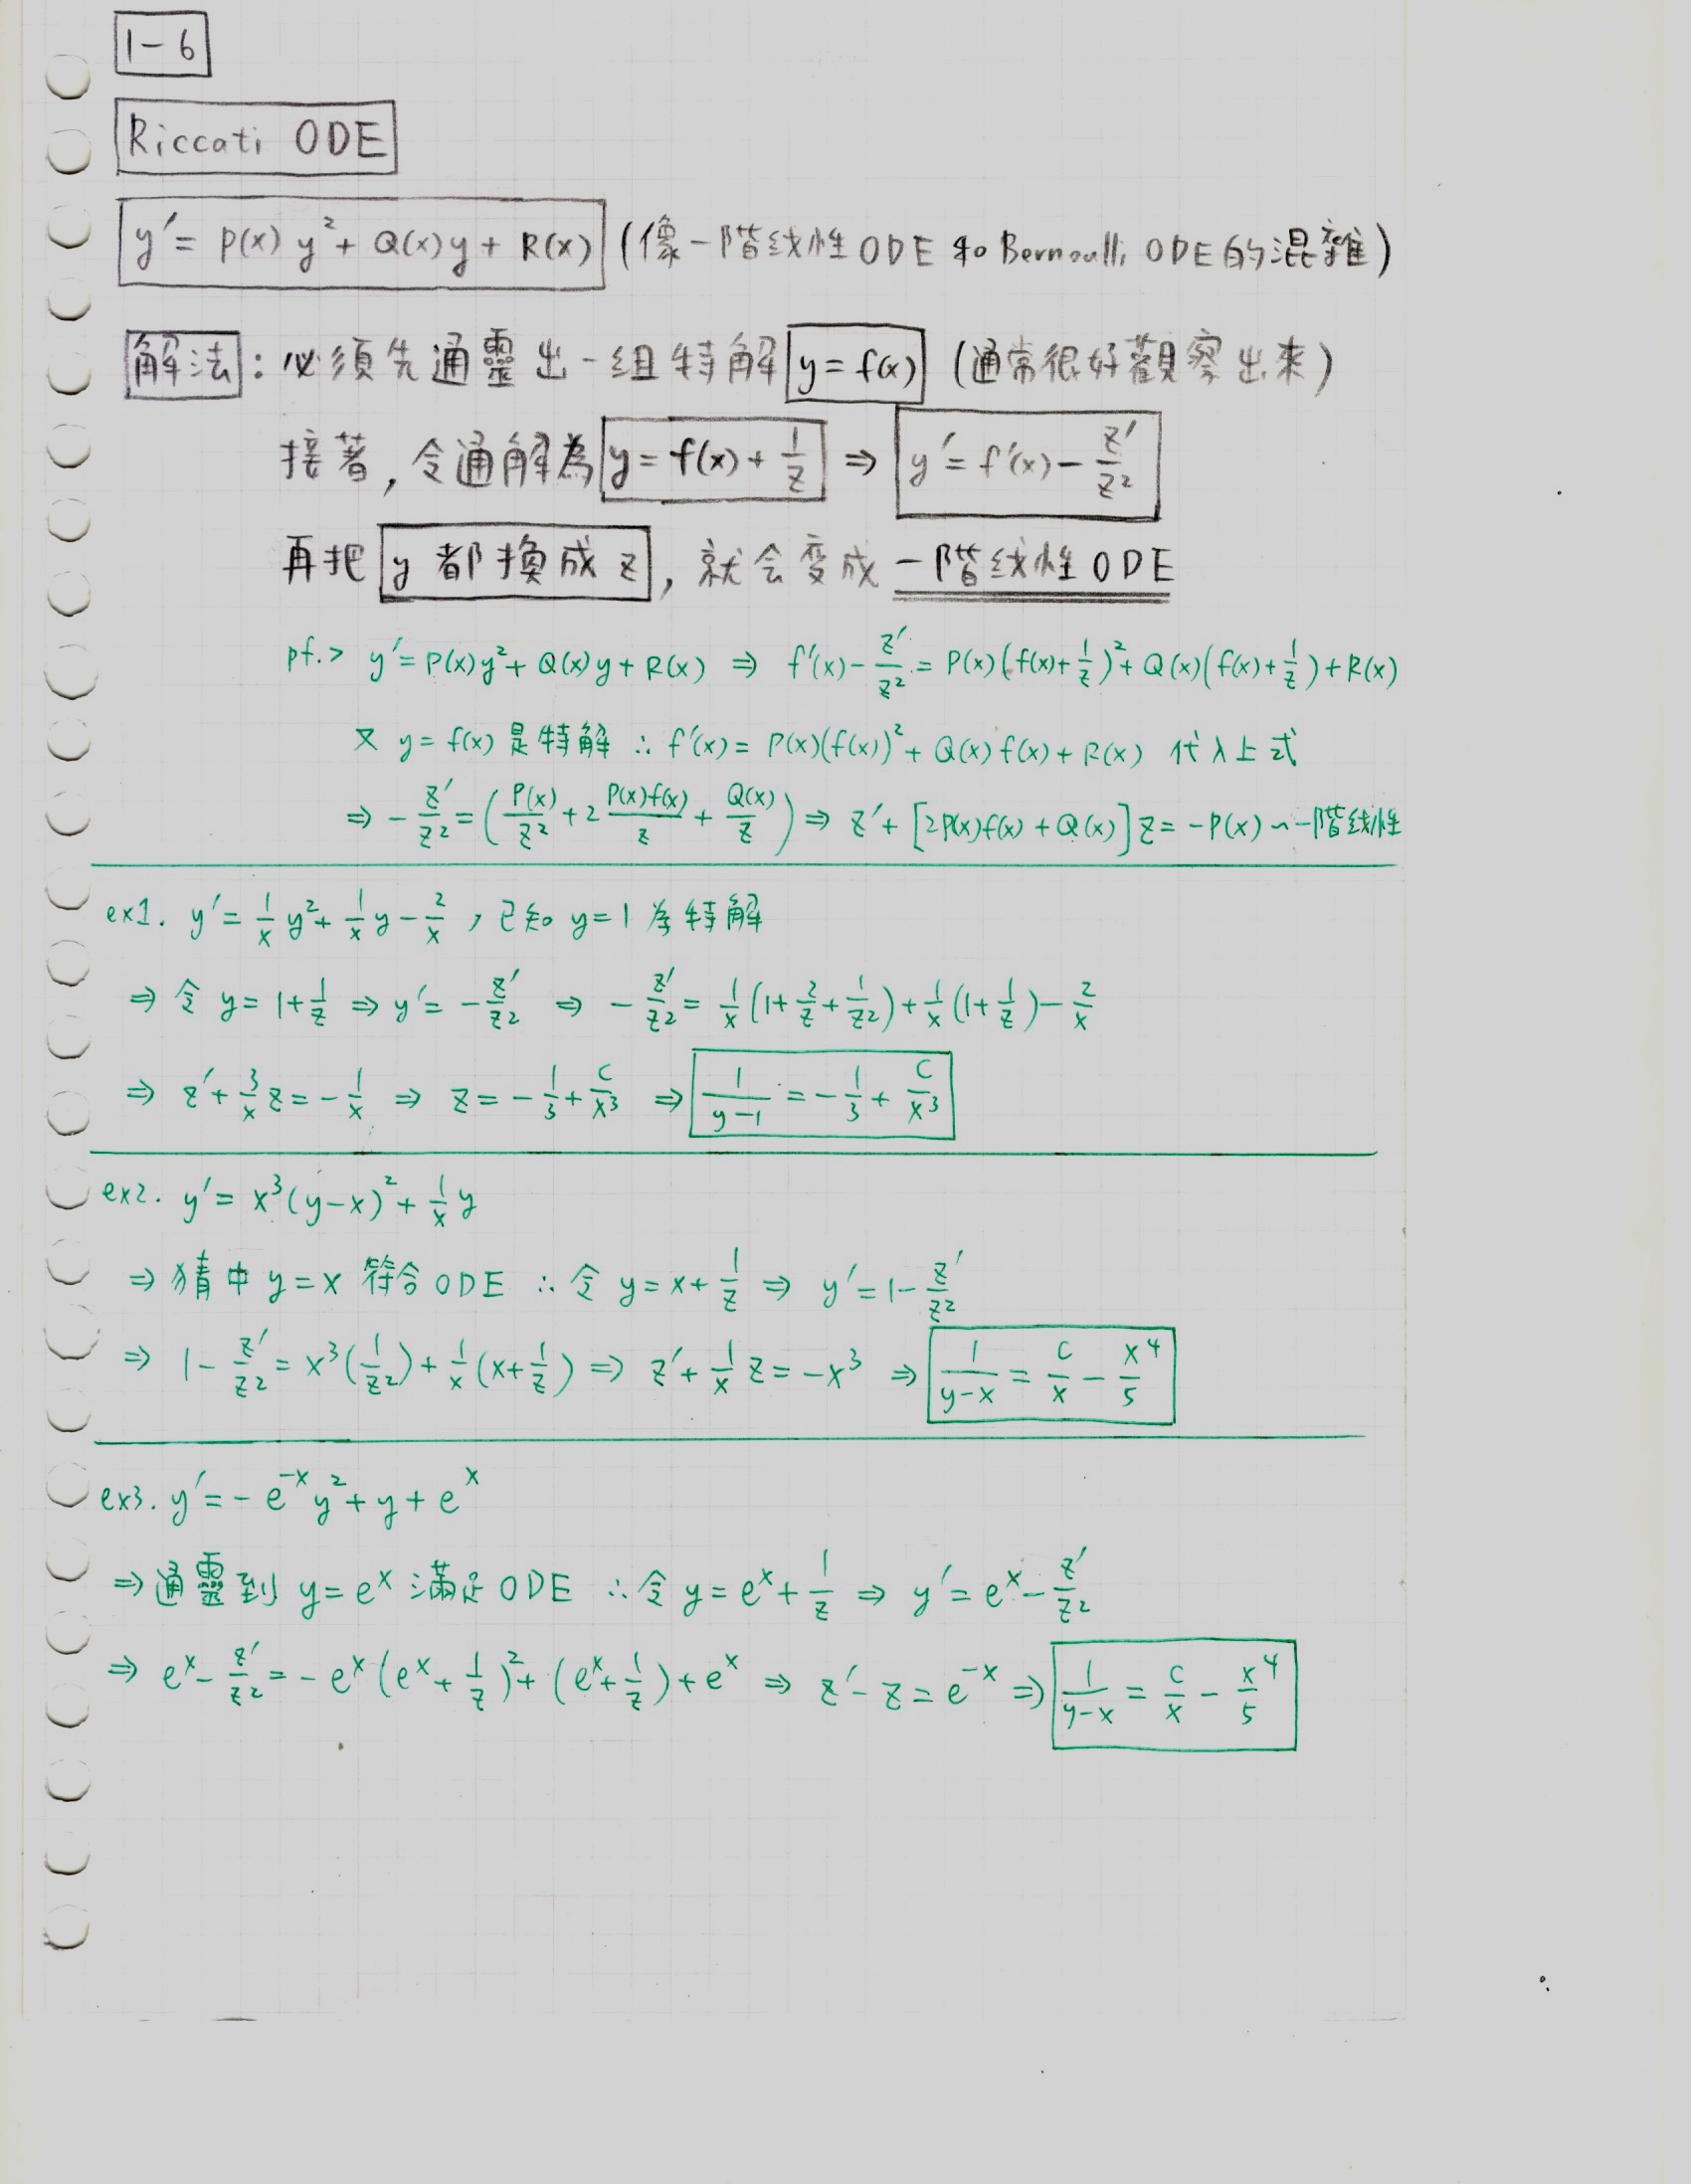 1-6
Riccati ODE
y′= P(x) y²+ Q(x)y + R(x) (像一階线性ODE和Bernoulli ODE的混雜)
解法：必須先通靈出一组特解 y = f(x) (通常很好觀察出來)
接著, 令通解為 y = f(x) + 1/z ⇒ y′= f′(x) - z′/z²
再把 y 都換成 z, 就会变成 一階线性ODE
pf.> y′= P(x)y²+ Q(x)y + R(x) ⇒ f′(x) - z′/z² = P(x)(f(x)+1/z)²+ Q(x)(f(x)+1/z)+R(x)
又 y = f(x) 是特解 ∴ f′(x) = P(x)(f(x))²+ Q(x)f(x)+R(x) 代入上式
⇒ - z′/z² = (P(x)/z² + 2 P(x)f(x)/z + Q(x)/z) ⇒ z′+ [2P(x)f(x) + Q(x)]z = -P(x) ~一階线性
ex1. y′= 1/x y²+ 1/x y - 2/x , 已知 y=1 為特解
⇒ 令 y = 1+1/z ⇒ y′= - z′/z² ⇒ - z′/z² = 1/x (1+ 2/z + 1/z²) + 1/x (1+ 1/z) - 2/x
⇒ z′+ 3/x z = - 1/x ⇒ z = - 1/3 + c/x³ ⇒ 1/(y-1) = - 1/3 + c/x³
ex2. y′= x³(y-x)²+ 1/x y
⇒ 猜中 y=x 符合ODE ∴ 令 y = x+ 1/z ⇒ y′= 1- z′/z²
⇒ 1 - z′/z² = x³(1/z²) + 1/x (x+ 1/z) ⇒ z′+ 1/x z = -x³ ⇒ 1/(y-x) = c/x - x⁴/5
ex3. y′= - e⁻ˣy²+ y + eˣ
⇒通靈到 y = eˣ 滿足ODE ∴令 y = eˣ + 1/z ⇒ y′= eˣ - z′/z²
⇒ eˣ - z′/z² = - eˣ (eˣ + 1/z)²+ (eˣ+ 1/z) + eˣ ⇒ z′- z = e⁻ˣ ⇒ 1/(y-x) = c/x - x⁴/5